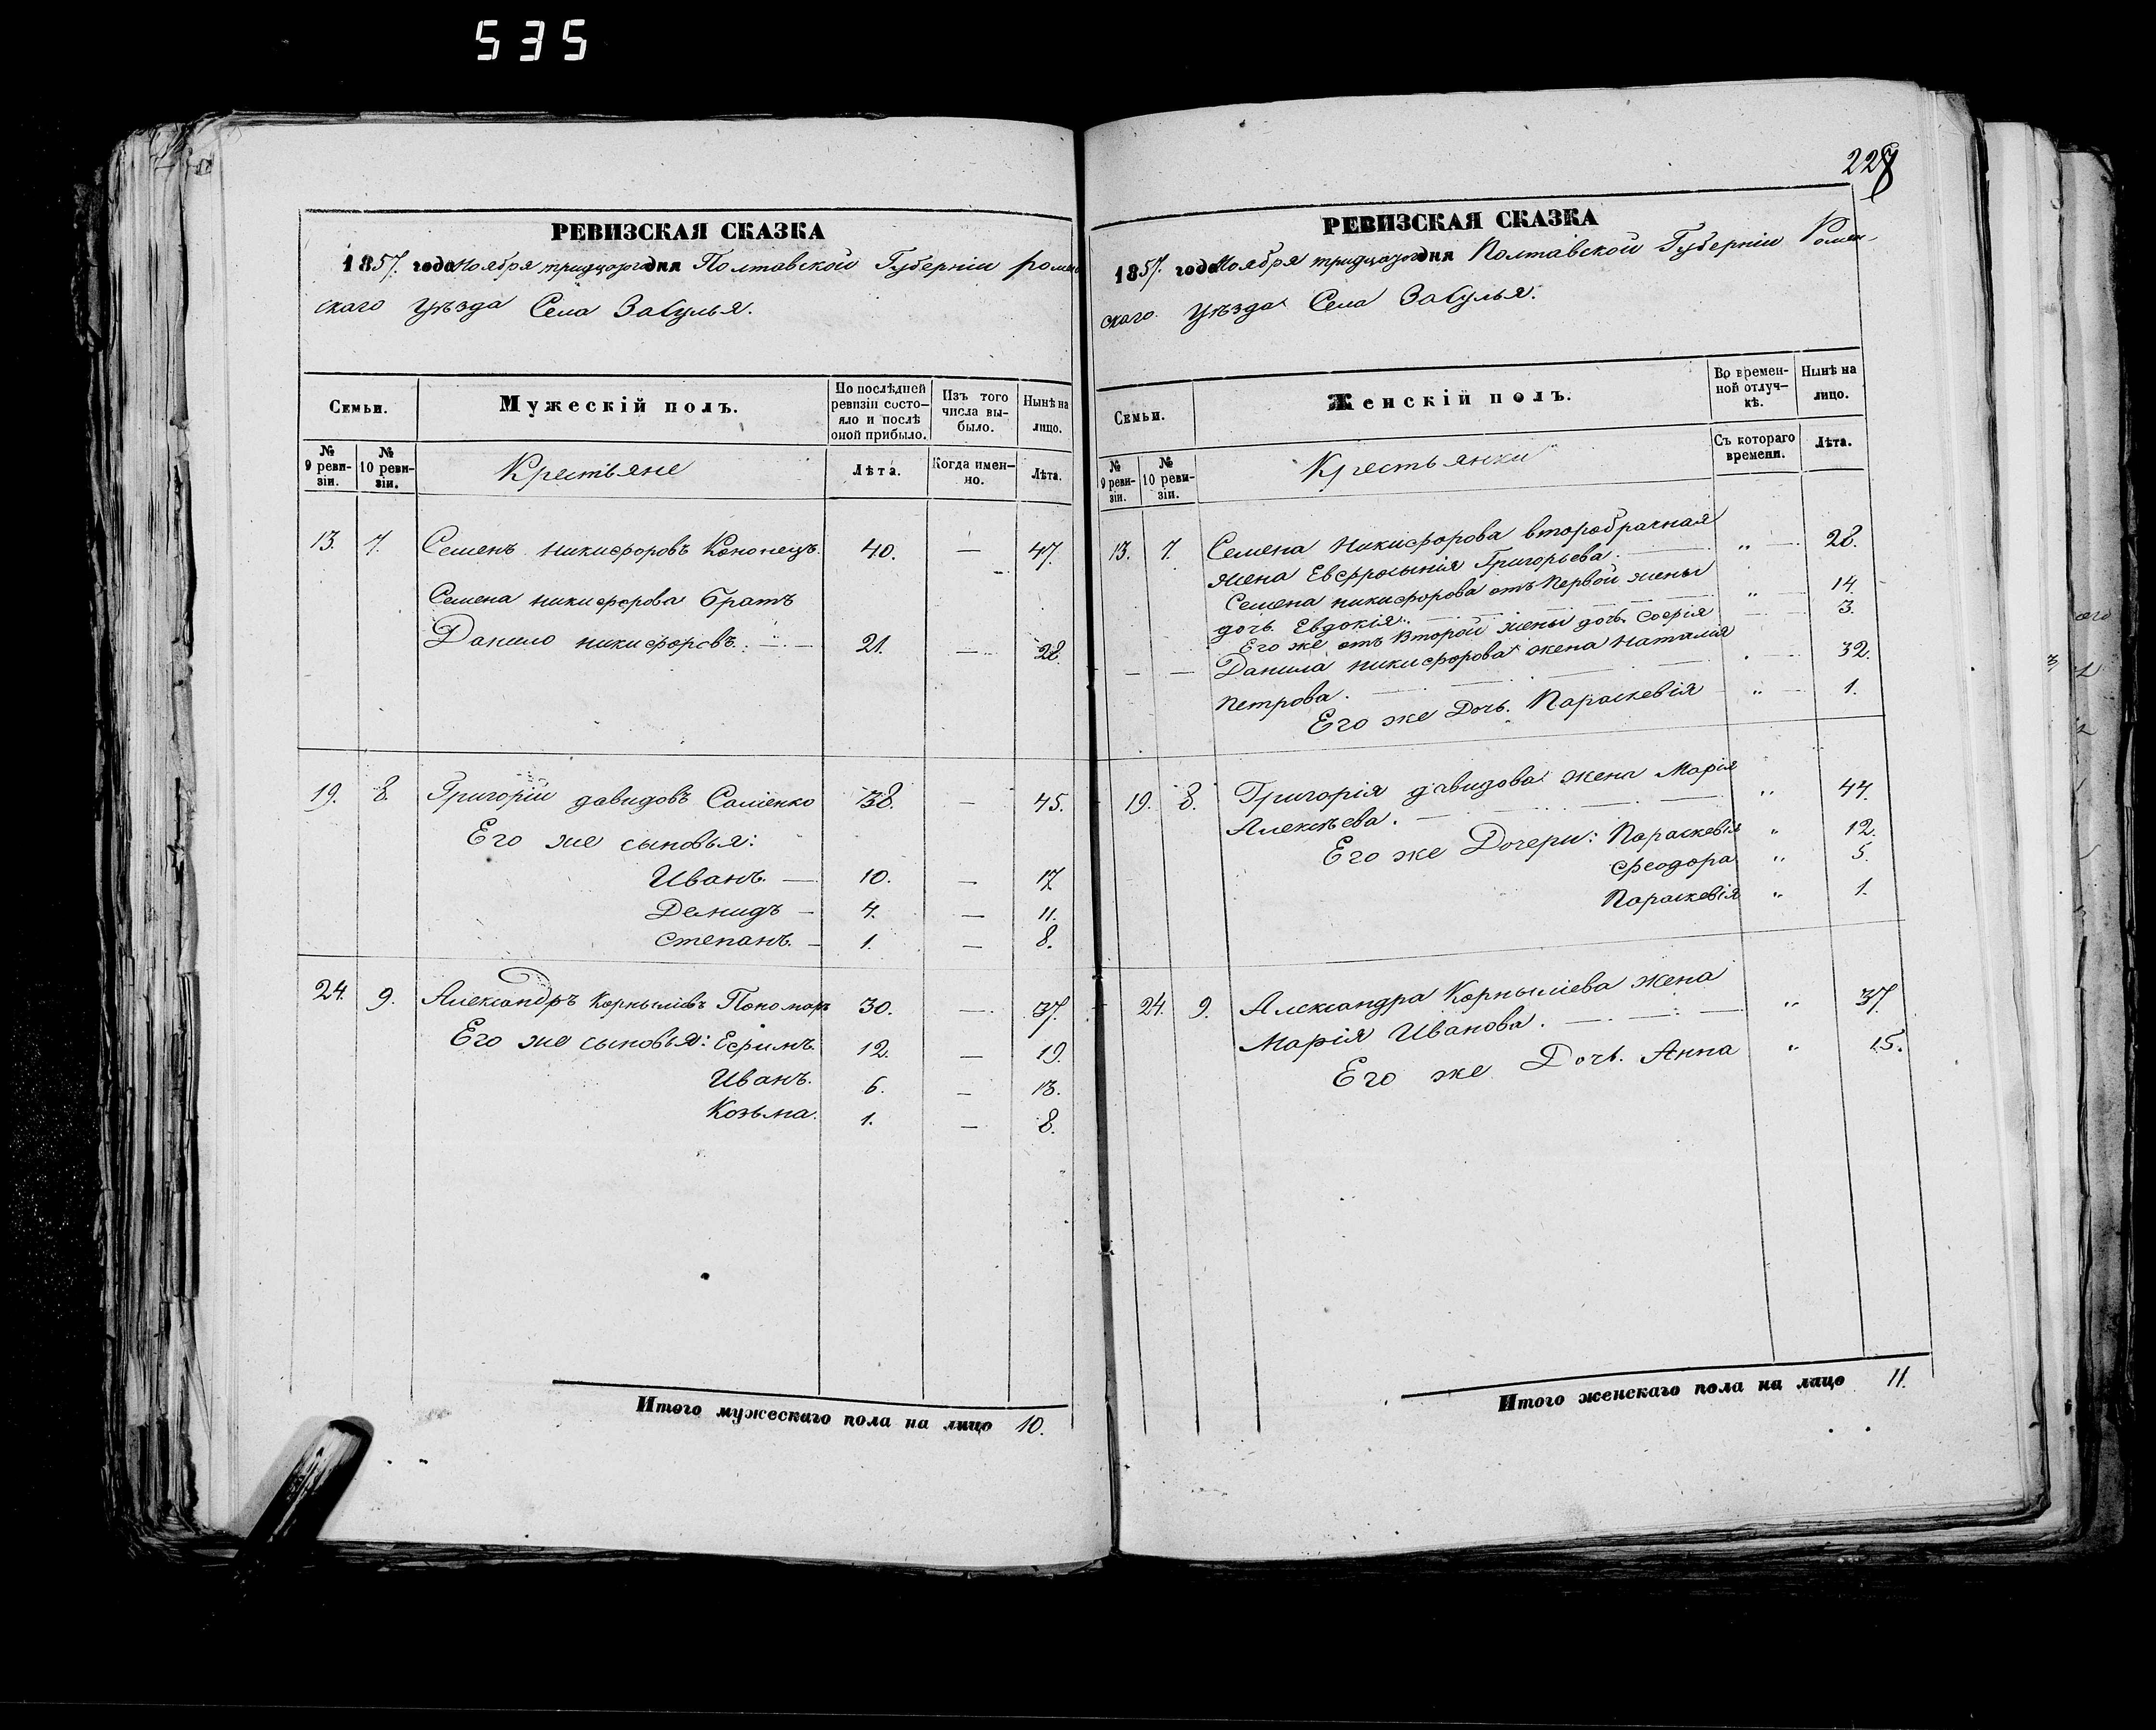 535
РЕВИЗСКАЯ СКАЗКА
1857. года Ноября тридцатого дня Полтавской Губерніи Ромен
скаго Уѣзда Села Засулья.
Семьи.
Мужескій полъ.
По послѣдней ревизіи состо–яло и послѣ оной прибыло.
Изъ того числа вы–было.
Нынѣ на лицо.
№ 9 реви-зіи.
№ 10 реви-зіи.
Крестьяне
Лѣта.
Когда имен–но.
Лѣта.
13. 7. Семенъ Никифоровъ Кононецъ. 40. — 47.
Семена Никифорова братъ
Данило Никифоровъ. 21. — 28.
19. 8. Григорій Давидовъ Саменко 38. — 45.
Его же сыновья:
Иванъ. — 10. — 17
Демидъ — 4. — 11.
Степанъ. — 1. — 8.
24. 9. Александръ Корныліевъ Пономарь 30. — 37.
Его же сыновья: Ефимъ. 12. — 19.
Иванъ. 6. — 13.
Козьма. 1. — 8.
Итого мужескаго пола на лицо 10.
227
РЕВИЗСКАЯ СКАЗКА
1857. года Ноября тридцатого дня Полтавской Губерніи Ромен-
скаго Уѣзда Села Засулья.
Семьи.
Женскій полъ.
Во времен-ной отлуч–кѣ.
Нынѣ на лицо.
№ 9 реви-зіи.
№ 10 реви-зіи.
Крестьянки
Съ котораго времени.
Лѣта.
13. 7. Семена Никифорова второбрачная
жена Евфросинія Григорьева. — „ — 28.
Семена Никифорова отъ первой жены
дочь Евдокія. — „ — 14.
Его же отъ второй жены дочь Софія — 3.
— — Данила Никифорова жена Наталія
Петрова. — 32.
Его же Дочь. Параскевія „ — 1.
19. 8. Григорія Давидова жена Марія
Алексѣева. — „ 44.
Его же Дочери: Параскевія „ 12.
Феодора „ 5.
Параскевія „ 1.
24. 9. Александра Корныліева жена
Марія Иванова. — „ 37.
Его же Дочь. Анна „ 15.
Итого женскаго пола на лицо 11.